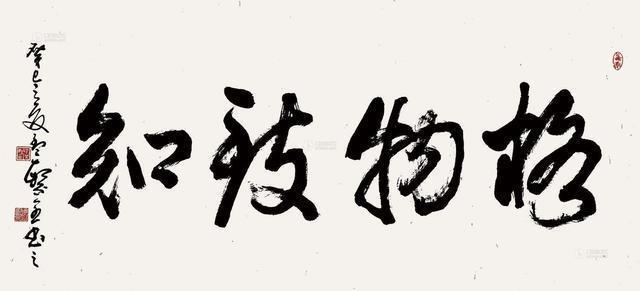 格物致知
癸巳之夏
书之